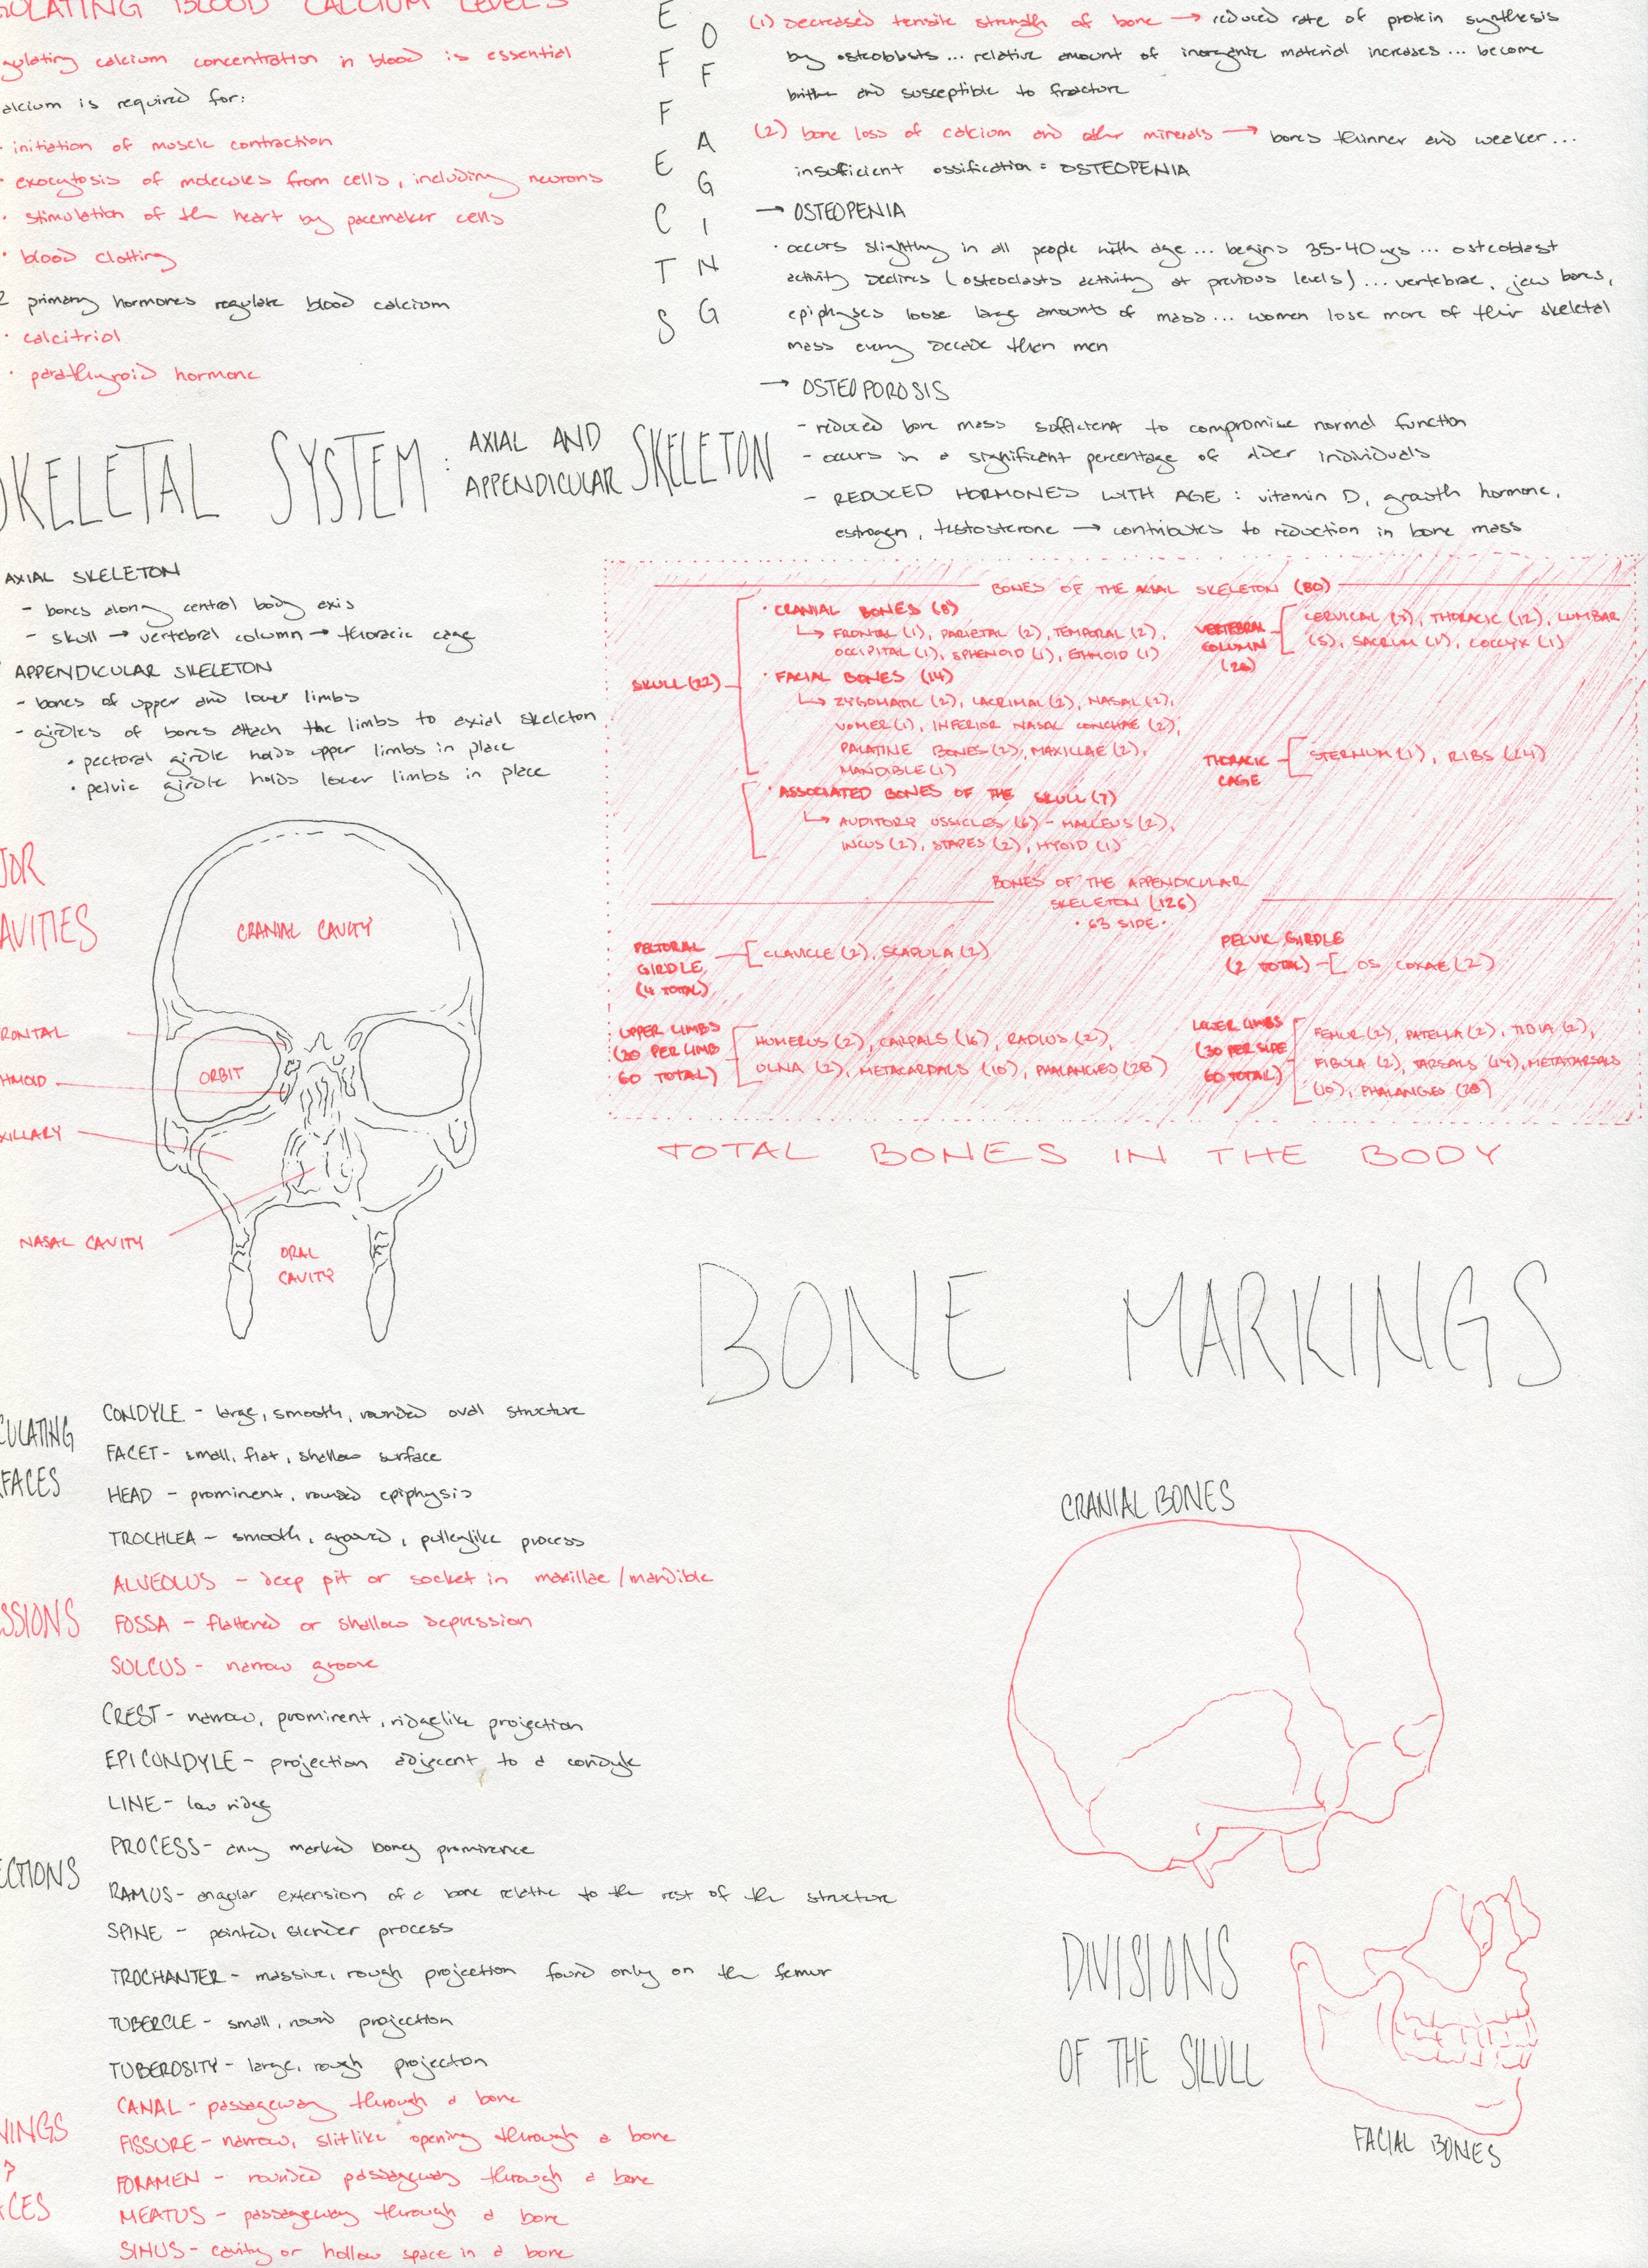 GULATING BLOOD CALCIUM LEVELS
gulating calcium concentration in blood is essential
alcium is required for:
· initiation of muscle contraction
· exocytosis of molecules from cells, including neurons
· stimulation of the heart by pacemaker cells
· blood clotting
2 primary hormones regulate blood calcium
· calcitriol
· parathyroid hormone
EFFECTS
OF AGING
(1) decreased tensile strength of bone → reduced rate of protein synthesis
by osteoblasts... relative amount of inorganic material increases... become
brittle and susceptible to fracture
(2) bone loss of calcium and other minerals → bones thinner and weaker...
insufficient ossification = OSTEOPENIA
→ OSTEOPENIA
· occurs slightly in all people with age... begins 35-40 yrs... osteoblast
activity declines (osteoclasts activity at previous levels)... vertebrae, jaw bones,
epiphyses loose large amounts of mass... women lose more of their skeletal
mass every decade then men
→ OSTEOPOROSIS
- reduced bone mass sufficient to compromise normal function
- occurs in a significant percentage of older individuals
- REDUCED HORMONES WITH AGE: vitamin D, growth hormone,
estrogen, testosterone → contributes to reduction in bone mass
SKELETAL SYSTEM: AXIAL AND APPENDICULAR SKELETON
AXIAL SKELETON
- bones along central body axis
- skull → vertebral column → thoracic cage
APPENDICULAR SKELETON
- bones of upper and lower limbs
- girdles of bones attach the limbs to axial skeleton
· pectoral girdle holds upper limbs in place
· pelvic girdle holds lower limbs in place
BONES OF THE AXIAL SKELETON (80)
SKULL (22)
· CRANIAL BONES (8)
↳ FRONTAL (1), PARIETAL (2), TEMPORAL (2),
OCCIPITAL (1), SPHENOID (1), ETHMOID (1)
· FACIAL BONES (14)
↳ ZYGOMATIC (2), LACRIMAL (2), NASAL (2),
VOMER (1), INFERIOR NASAL CONCHAE (2),
PALATINE BONES (2), MAXILLAE (2),
MANDIBLE (1)
· ASSOCIATED BONES OF THE SKULL (7)
↳ AUDITORY OSSICLES (6) - MALLEUS (2),
INCUS (2), STAPES (2), HYOID (1)
VERTEBRAL
COLUMN
(26)
CERVICAL (7), THORACIC (12), LUMBAR
(5), SACRUM (1), COCCYX (1)
THORACIC
CAGE
STERNUM (1), RIBS (24)
BONES OF THE APPENDICULAR
SKELETON (126)
· 63 SIDE ·
PECTORAL
GIRDLE
(4 TOTAL)
CLAVICLE (2), SCAPULA (2)
PELVIC GIRDLE
(2 TOTAL)
OS COXAE (2)
UPPER LIMBS
(30 PER LIMB
60 TOTAL)
HUMERUS (2), CARPALS (16), RADIUS (2),
ULNA (2), METACARPALS (10), PHALANGES (28)
LOWER LIMBS
(30 PER SIDE
60 TOTAL)
FEMUR (2), PATELLA (2), TIBIA (2),
FIBULA (2), TARSALS (14), METATARSALS
(10), PHALANGES (28)
TOTAL BONES IN THE BODY
JOR
AVITIES
CRANIAL CAVITY
RONTAL
ORBIT
HMOID
XILLARY
NASAL CAVITY
ORAL
CAVITY
BONE MARKINGS
CULATING
FACES
CONDYLE - large, smooth, rounded oval structure
FACET - small, flat, shallow surface
HEAD - prominent, rounded epiphysis
TROCHLEA - smooth, grooved, pulleylike process
SSIONS
ALVEOLUS - deep pit or socket in maxillae/mandible
FOSSA - flattened or shallow depression
SULCUS - narrow groove
ECTIONS
CREST - narrow, prominent, ridgelike projection
EPICONDYLE - projection adjecent to a condyle
LINE - low ridge
PROCESS - any marked boney prominence
RAMUS - anaglar extension of a bone relative to the rest of the structure
SPINE - pointed, slender process
TROCHANTER - massive, rough projection found only on the femur
TUBERCLE - small, round projection
TUBEROSITY - large, rough projection
NINGS
?
ACES
CANAL - passageway through a bone
FISSURE - narrow, slitlike opening through a bone
FORAMEN - rounded passageway through a bone
MEATUS - passageway through a bone
SINUS - cavity or hollow space in a bone
CRANIAL BONES
DIVISIONS
OF THE SKULL
FACIAL BONES